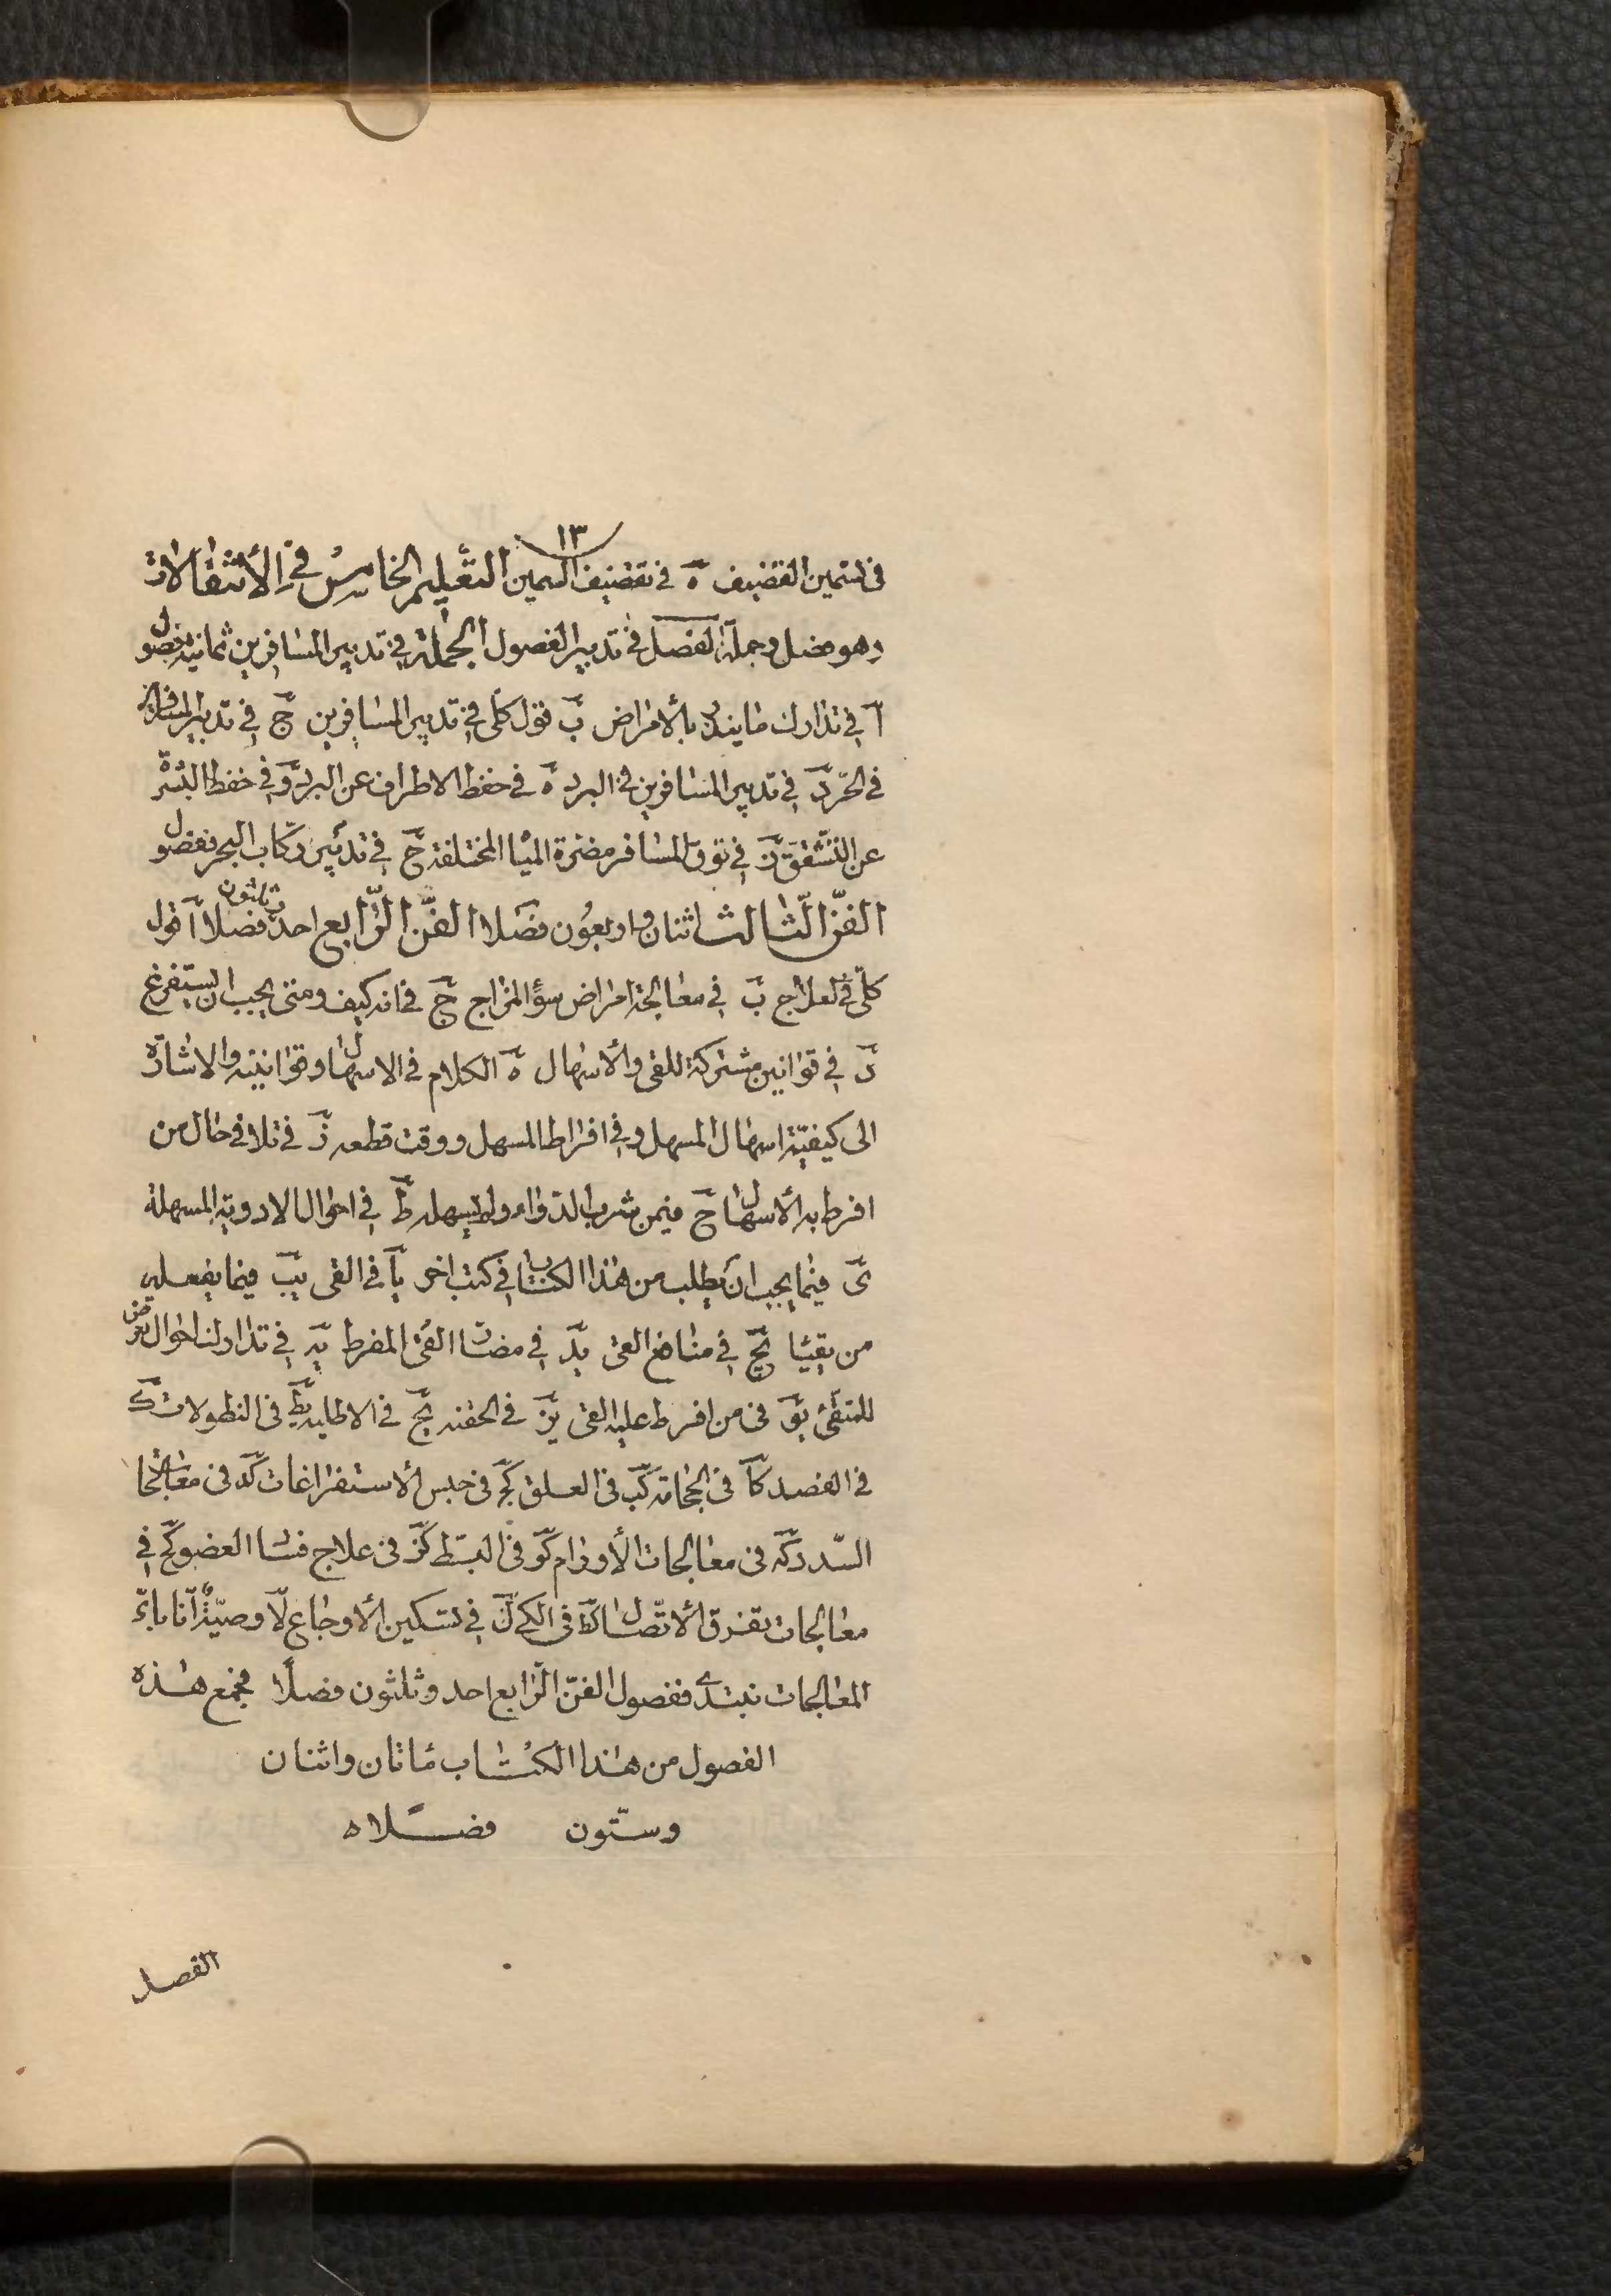 ١٣
فى تسمين القضيف ه فى تقضيف السمين التعليم الخامس فى الأنتقالات
وهو فصل وجملة الفصل فى تدبير الفصول الجملة فى تدبير المسافرين ثمانية فصول
آ فى تدارك ما ينذر بالأمراض ب قول كلى فى تدبير المسافرين ج فى تدبير المسافرين
فى الحرّ د فى تدبير المسافرين فى البرد ه فى حفظ الاطراف عن البرد و فى حفظ البشرة
عن التشقق ز فى توقّ المسافر مضرة المياه المختلفة ح فى تدبير ركّاب البحر ففصول
الفنّ الثّالث اثنان واربعون فصلا الفنّ الرّابع احد وثلثون فصلا آ قول
كلّى فى العلاج ب فى معالجة امراض سوء المزاج ج فى انه كيف ومتى يجب ان يستفرغ
د فى قوانين مشتركة للقى والأسهال ه الكلام فى الاسهال وقوانينه والاشارة
الى كيفيّة اسهال المسهل و فى افراط المسهل ووقت قطعه ز فى تلافى حال من
افرط به الأسهال ح فيمن شرب الدّواء ولم يسهله ط فى احوال الادوية المسهلة
ى فيما يجب ان يطلب من هذا الكتاب فى كتب اخر يآ فى القى يب فيما يفعله
من يقيّا يج فى منافع القى يد فى مضارّ القى المفرط يه فى تدارك احوال تعرض
للمتقئ يو فى من افرط عليه القى يز فى الحقنه يح فى الاطليه يط فى النطولات ك
فى الفصد كا فى الحجامة كب فى العلق كج فى حبس الأستفراغات كد فى معالجات
السّدد كه فى معالجات الأورام كو فى البطّ كز فى علاج فساد العضو كح فى
معالجات تفرق الأتّصال كط فى الكى ل فى تسكين الأوجاع لا وصيّة فى انّا باىّ
المعالجات نبتدى ففصول الفنّ الرّابع احد وثلثون فصلًا مجمع هذه
الفصول من هذا الكتاب مأتان واثنان
وستّون فصلًا ه
الفصل